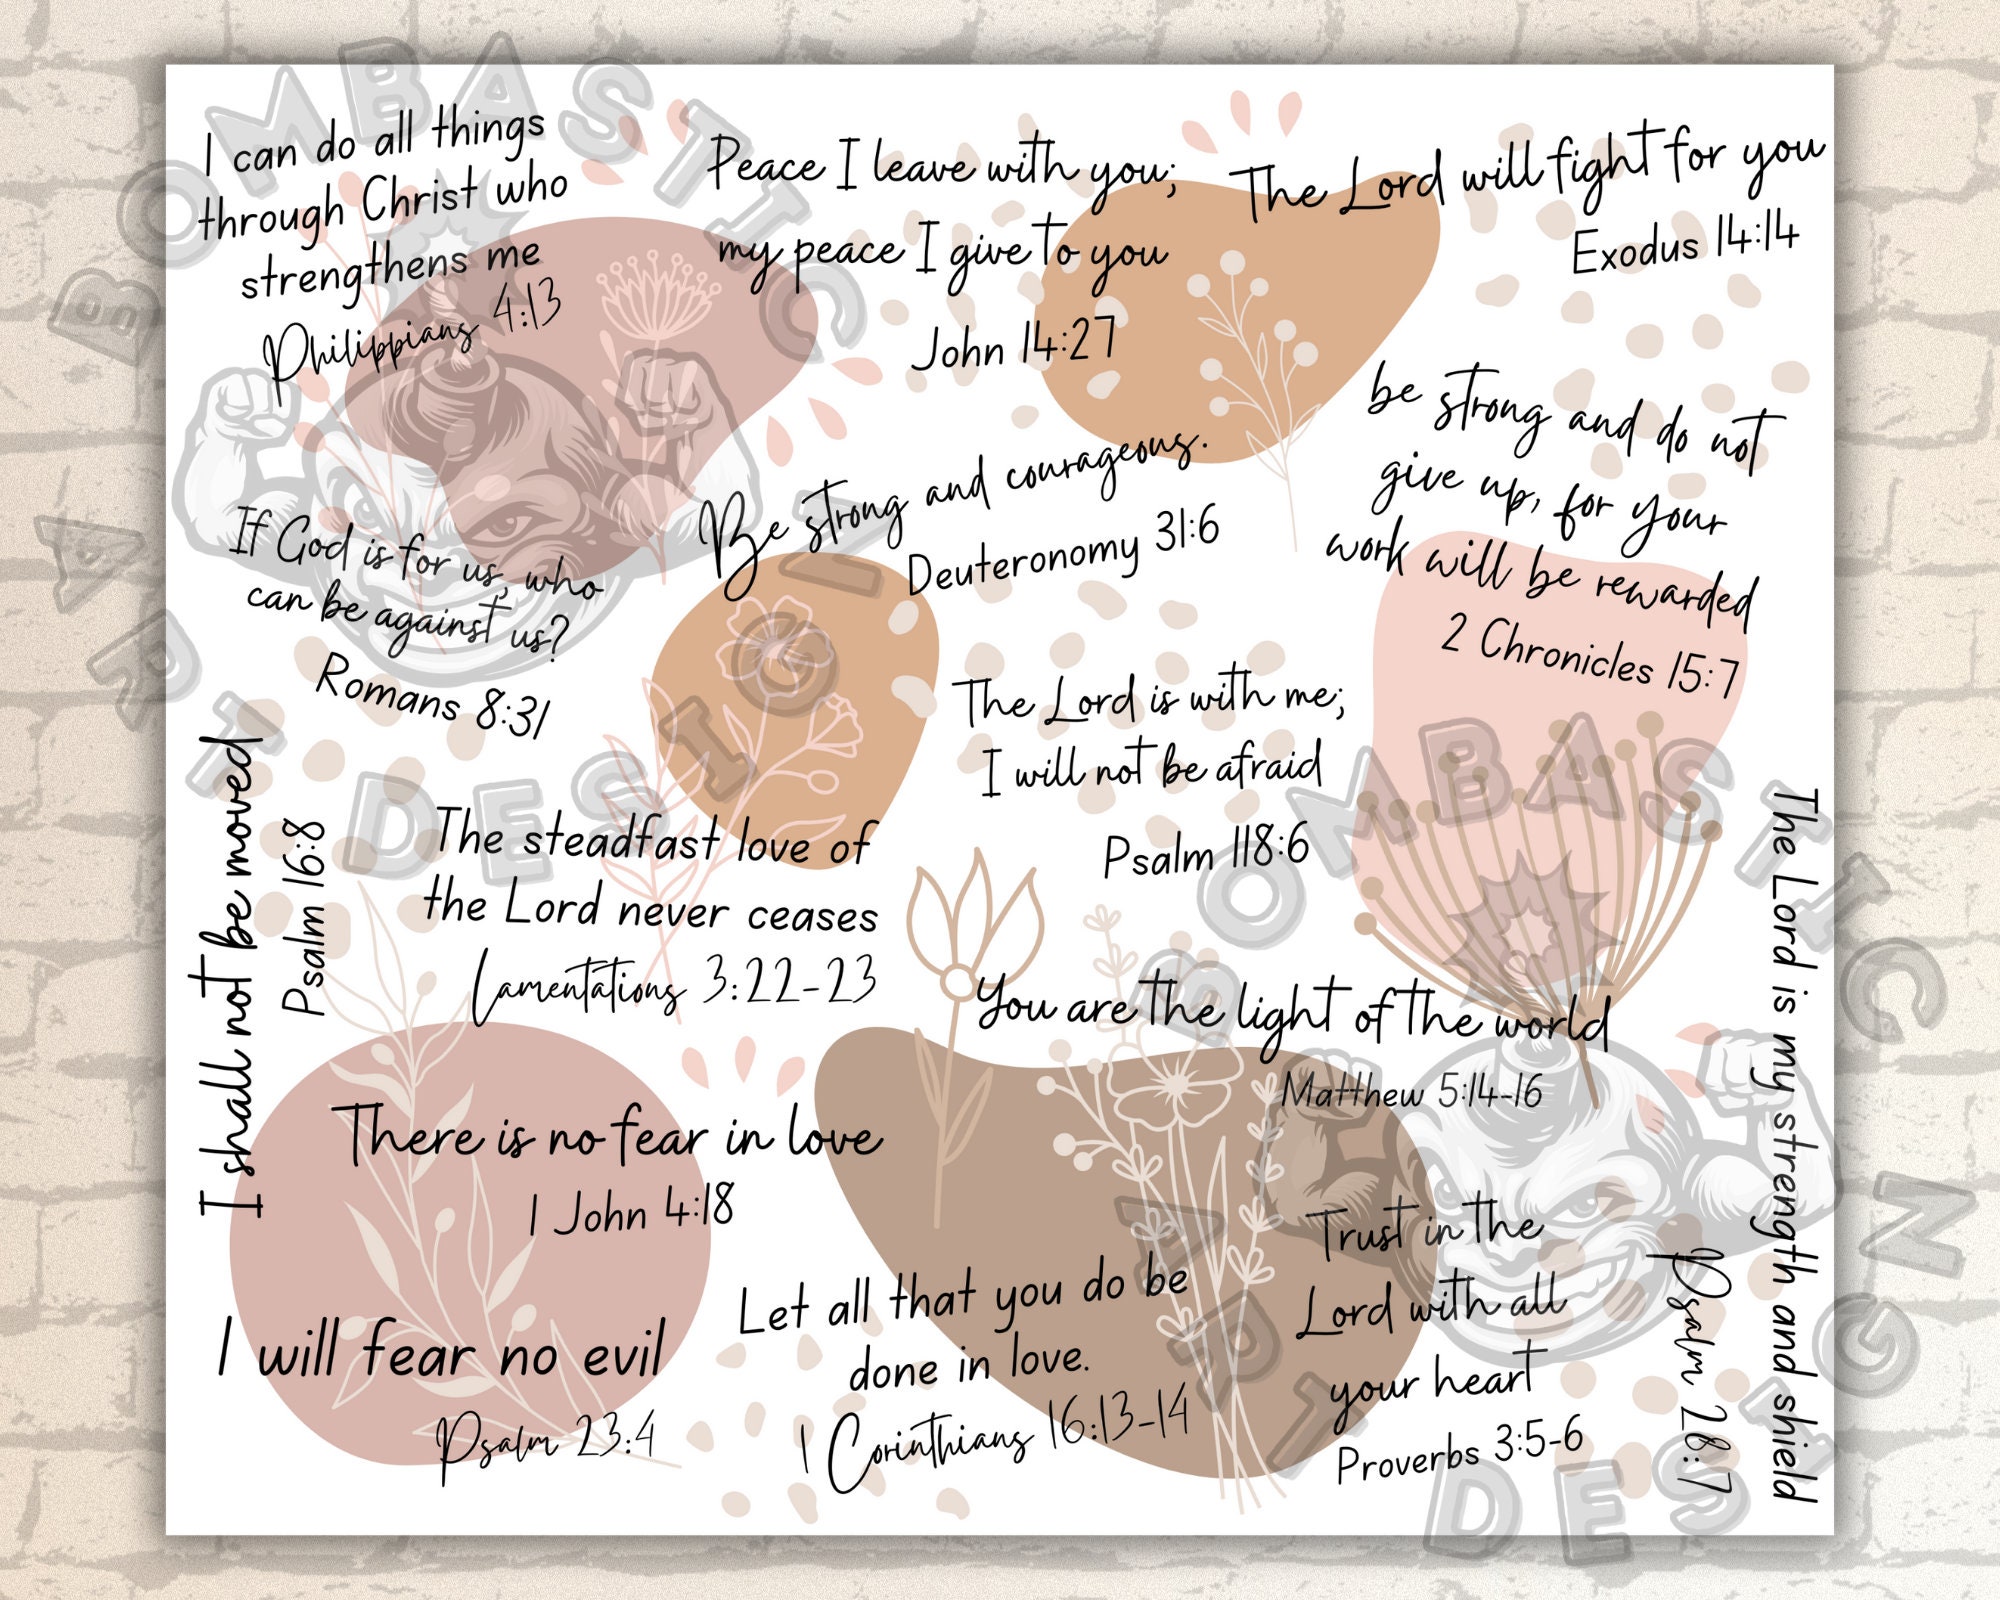 I can do all things
through Christ who
strengthens me
Philippians 4:13
Peace I leave with you;
my peace I give to you
John 14:27
The Lord will fight for you
Exodus 14:14
be strong and do not
give up, for your
work will be rewarded
2 Chronicles 15:7
Be strong and courageous.
Deuteronomy 31:6
If God is for us, who
can be against us?
Romans 8:31
The Lord is with me;
I will not be afraid
Psalm 118:6
I shall not be moved
Psalm 16:8
The steadfast love of
the Lord never ceases
Lamentations 3:22-23
You are the light of the world
Matthew 5:14-16
There is no fear in love
1 John 4:18
I will fear no evil
Psalm 23:4
Let all that you do be
done in love.
1 Corinthians 16:13-14
Trust in the
Lord with all
your heart
Proverbs 3:5-6
The Lord is my strength and shield
Psalm 28:7
BOMBASTIC
ART DESIGN
BOMBASTIC
ART DESIGN